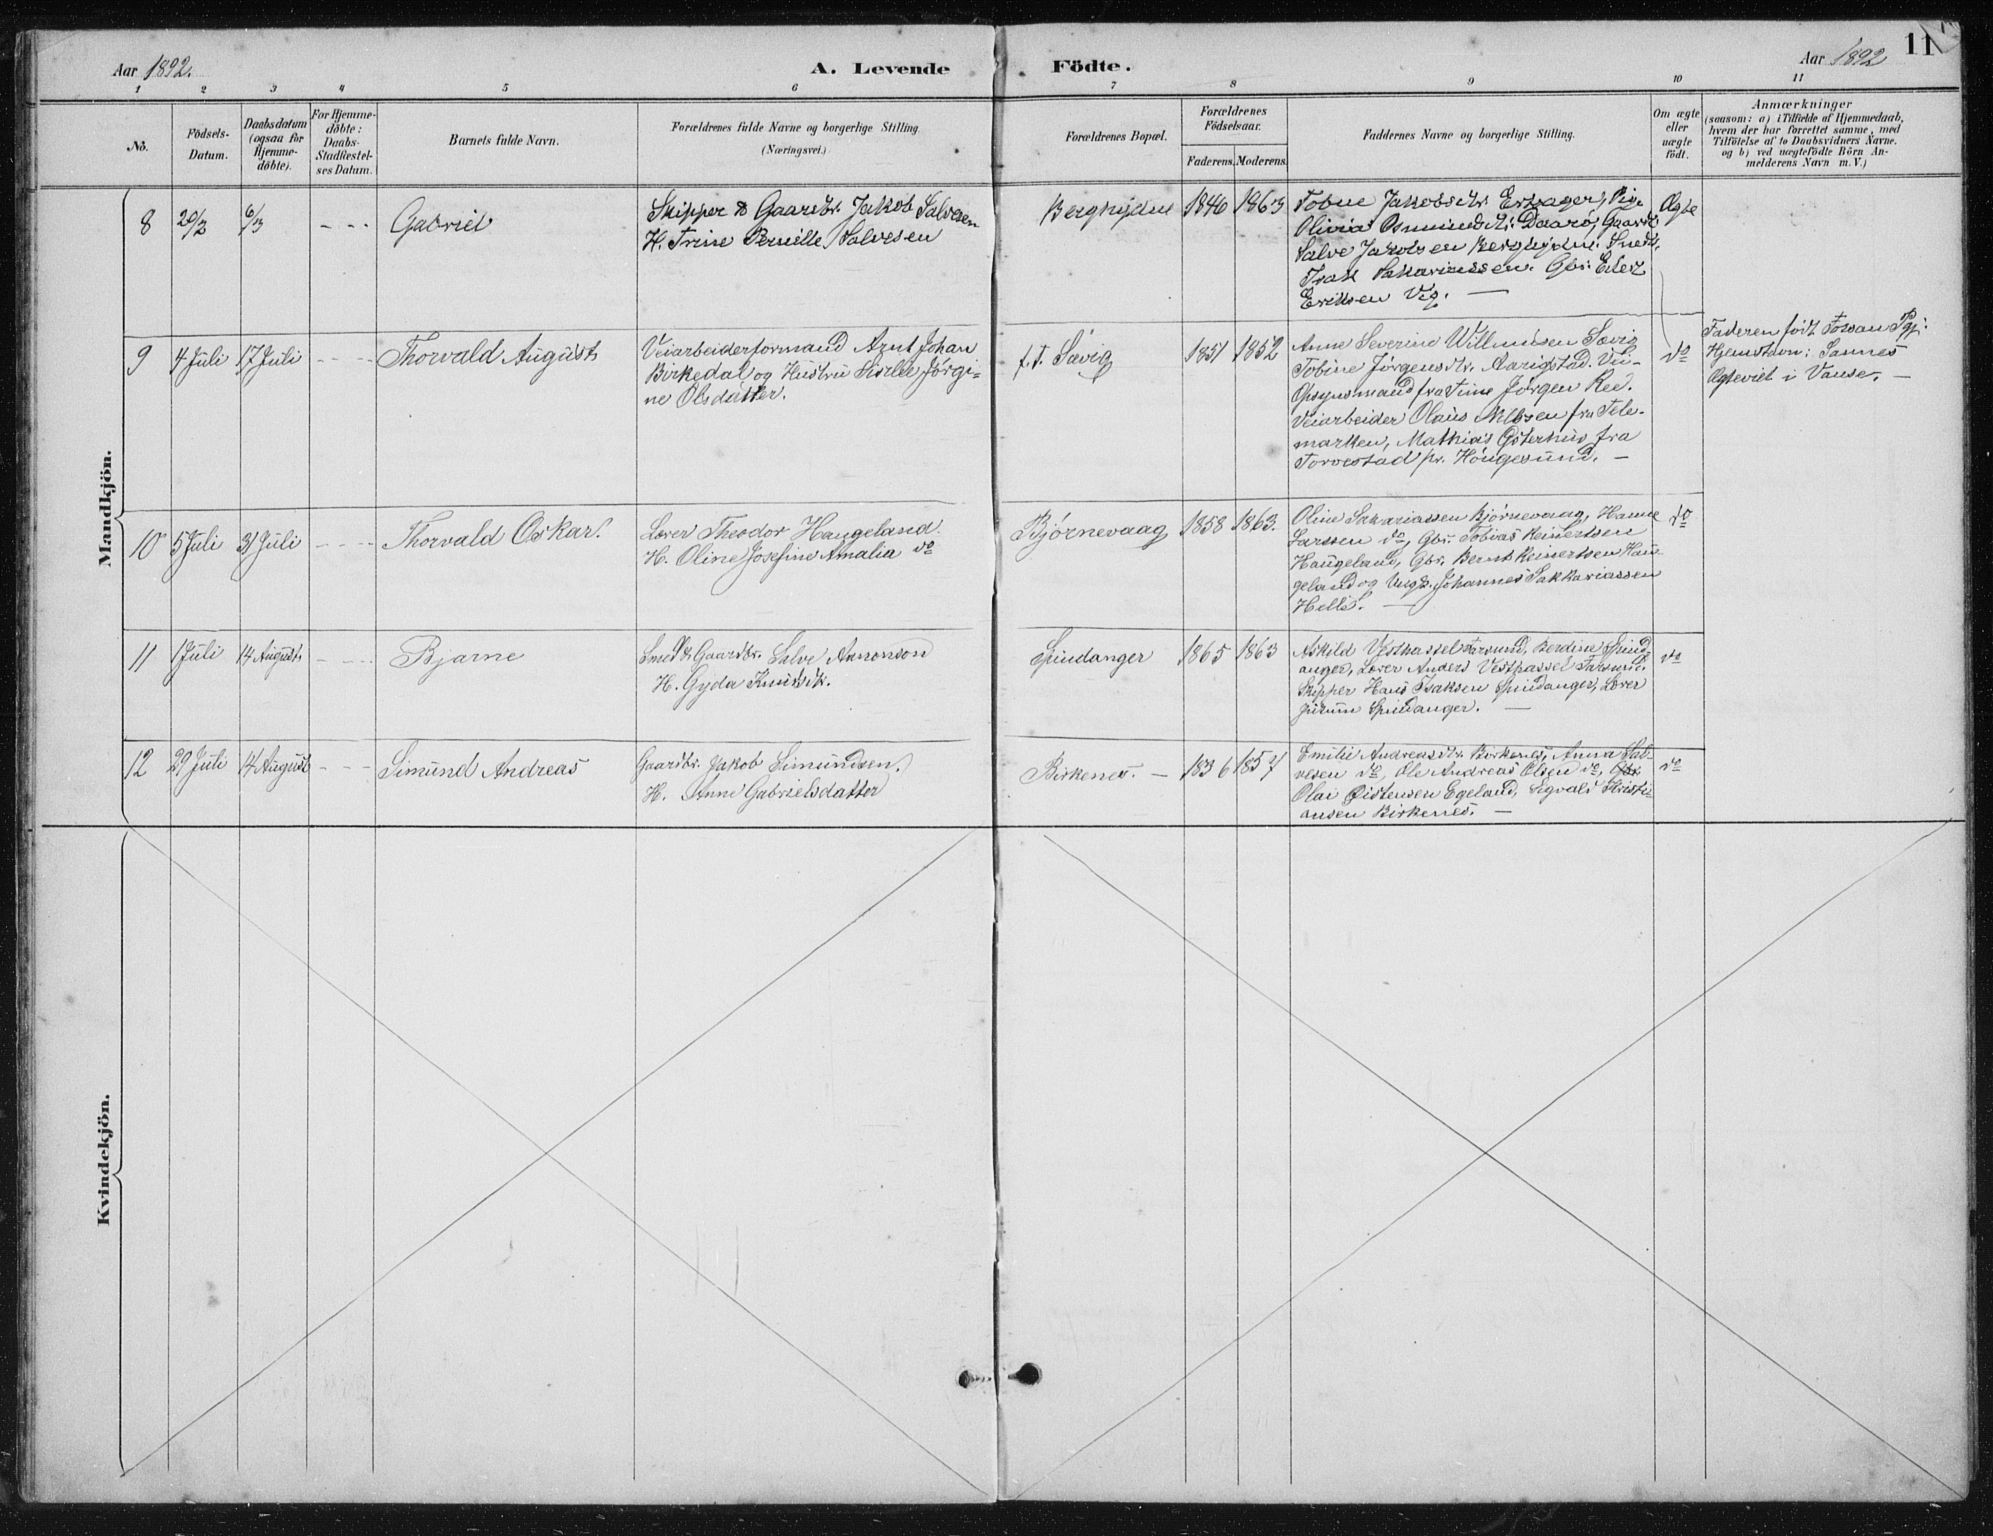 Aar 1892.
A. Levende Födte.
Aar 1892
11
1 2 3 4 5 6 7 8 9 10 11
No.
Födsels-
Datum.
Daabsdatum
(ogsaa for
Hjemme-
döbte).
For Hjemme-
döbte:
Daabs-
Stadfæstel-
ses Datum.
Barnets fulde Navn.
Forældrenes fulde Navne og borgerlige Stilling.
(Næringsvei.)
Forældrenes Bopæl.
Forældrenes
Födselsaar.
Faderens. Moderens.
Faddernes Navne og borgerlige Stilling.
Om ægte
eller
uægte
födt.
Anmærkninger
(saasom: a) i Tilfælde af Hjemmedaab,
hvem der har forrettet samme, med
Tilföielse af to Daabsvidners Navne.
og b) ved uægtefödte Börn An-
melderens Navn m. V.)
Mandkjön.
8
6/3
Gabriel
Skipper & Gaardbr. Jakob Salvesen
H. Trine Pernille Salvesen
1846 1863
Tobine Jakobsdtr.
Olivia Osmundsdtr. Gaardb.
Salve Jakobsen
Isak Sakariassen. Gbr.
Eriksen Vig. —
Ægte
9
4 Juli
17 Juli
Thorvald August
Veiarbeiderformand Arnt Johan
Birkedal og Hustru Siselle Jørgi-
ne Olsdatter.
f.T. Sævig
1851 1852
Anne Severine Willumsen Sævig
Tobine Jørgensdtr. Aarigstad. Vei-
Opsynsmand fra Jørgen
Veiarbeider Olaus Nilsen fra Tele-
marken, Mathias Østerhus fra
Torvestad pr. Hougesund. —
do
Faderen født Fossan Pgj:
Hjemstavn: Sannes
Ægteviet i Vanse. —
10
5 Juli
31 Juli
Thorvald Oskar.
Lærer Theodor Haugeland.
H. Oline Josefine Amalia do
Bjørnevaag
1858 1863.
Oline Sakariassen Bjørnevaag, Hanne
Larssen do, Gbr. Tobias Reinertsen
Haugeland, Gbr. Bernt Reinertsen Hau-
geland og Ungk. Johannes Sakkariassen
Helle. —
do
11
1 Juli
14 August
Bjarne
Smed & Gaardbr. Salve Aanonson
H. Gyda
Spindanger
1865 1863
Askild Vesthassel Farsund, Berdine Spind-
anger, Lærer Anders Vesthassel Farsund.
Skipper Hans Isaksen Spindanger, Lærer
Spindanger. —
do
12
29 Juli
14 August
Simund Andreas
Gaardbr. Jakob Simundsen.
H. Anne Gabrielsdatter
Birkenes. —
1836 1857
Emilie Andreasdtr. Birkenes, Anna Sal-
vesen do, Ole Andreas Olsen do, Gbr.
Olai Østensen Egeland, Sigvald Kristi-
ansen Birkenes. —
do
Kvindekjön.